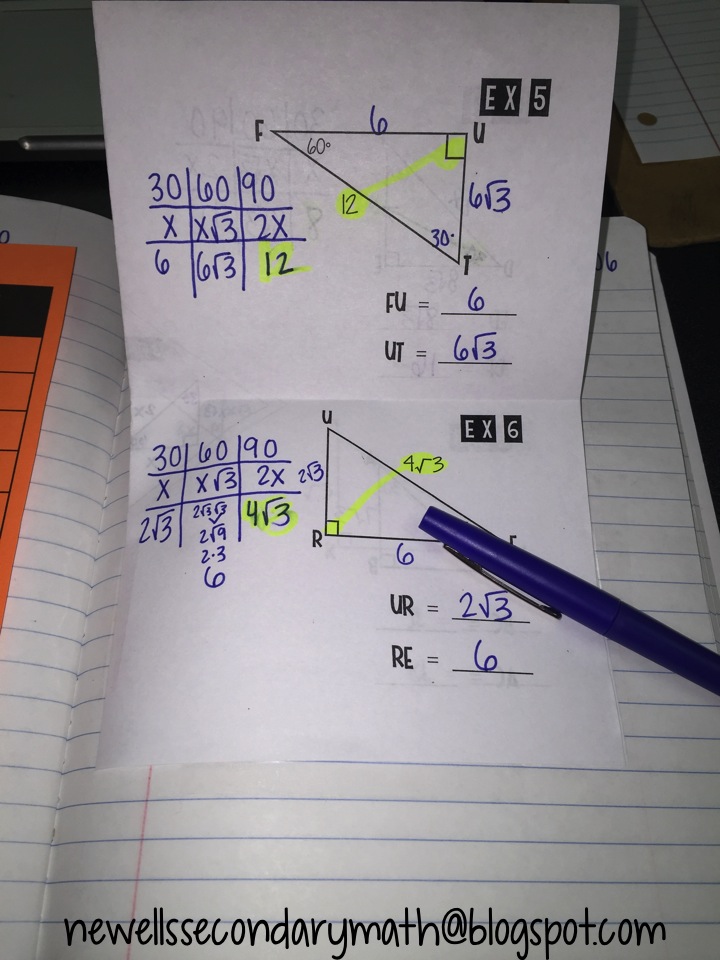 EX 5
F 6 U
60°
12
6√3
30°
T
30 60 90
x x√3 2x
6 6√3 12
FU = 6
UT = 6√3
EX 6
U
4√3
2√3
R
6
30 60 90
x x√3 2x
2√3 2√3√3 4√3
2√9
2·3
6
UR = 2√3
RE = 6
newellssecondarymath@blogspot.com